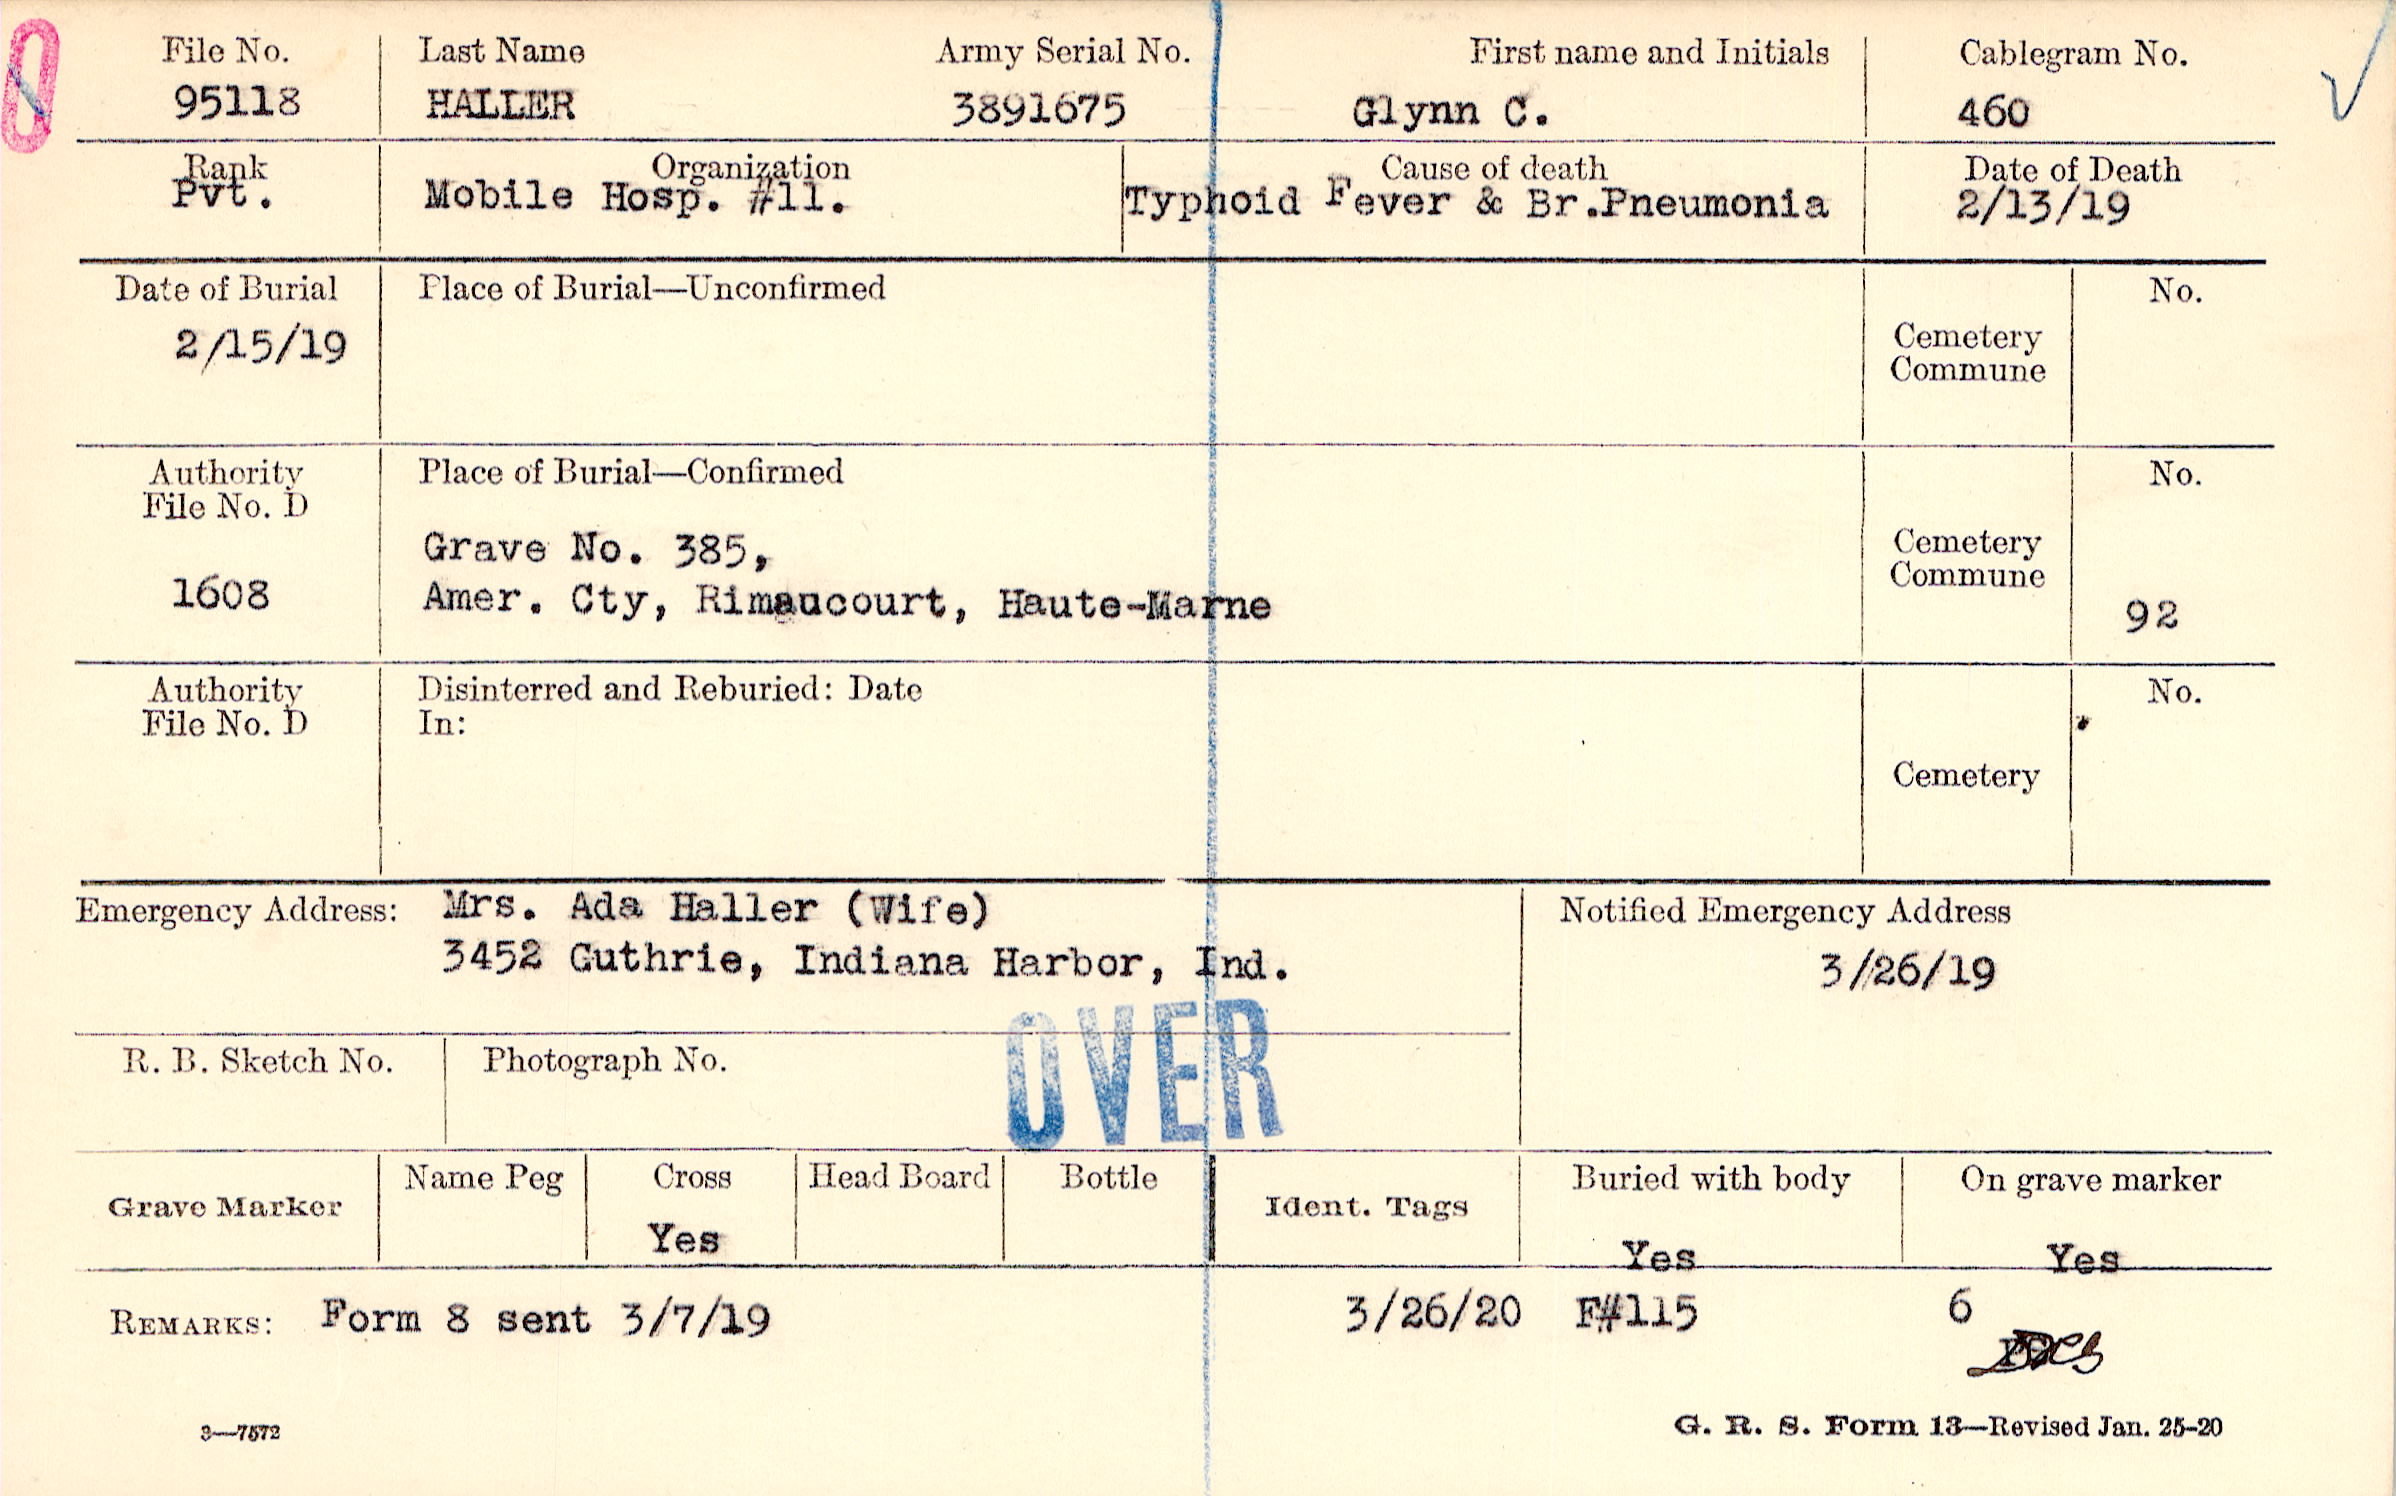 File No. Last Name Army Serial No. First name and Initials Cablegram No.
95118 HALLER 3891675 Glynn C. 460
Rank Organization Cause of death Date of Death
Pvt. Mobile Hosp. #11. Typhoid Fever & Br.Pneumonia 2/13/19
Date of Burial Place of Burial—Unconfirmed No.
2/15/19 Cemetery
Commune
Authority Place of Burial—Confirmed No.
File No. D
Grave No. 385, Cemetery
Commune
1608 Amer. Cty, Rimaucourt, Haute-Marne 92
Authority Disinterred and Reburied: Date No.
File No. D In:
Cemetery
Emergency Address: Mrs. Ada Haller (Wife) Notified Emergency Address
3452 Guthrie, Indiana Harbor, Ind. 3/26/19
OVER
R. B. Sketch No. Photograph No.
Grave Marker Name Peg Cross Head Board Bottle Ident. Tags Buried with body On grave marker
Yes Yes Yes
REMARKS: Form 8 sent 3/7/19 3/26/20 F#115 6
3—7572 G. R. S. Form 13—Revised Jan. 25-20